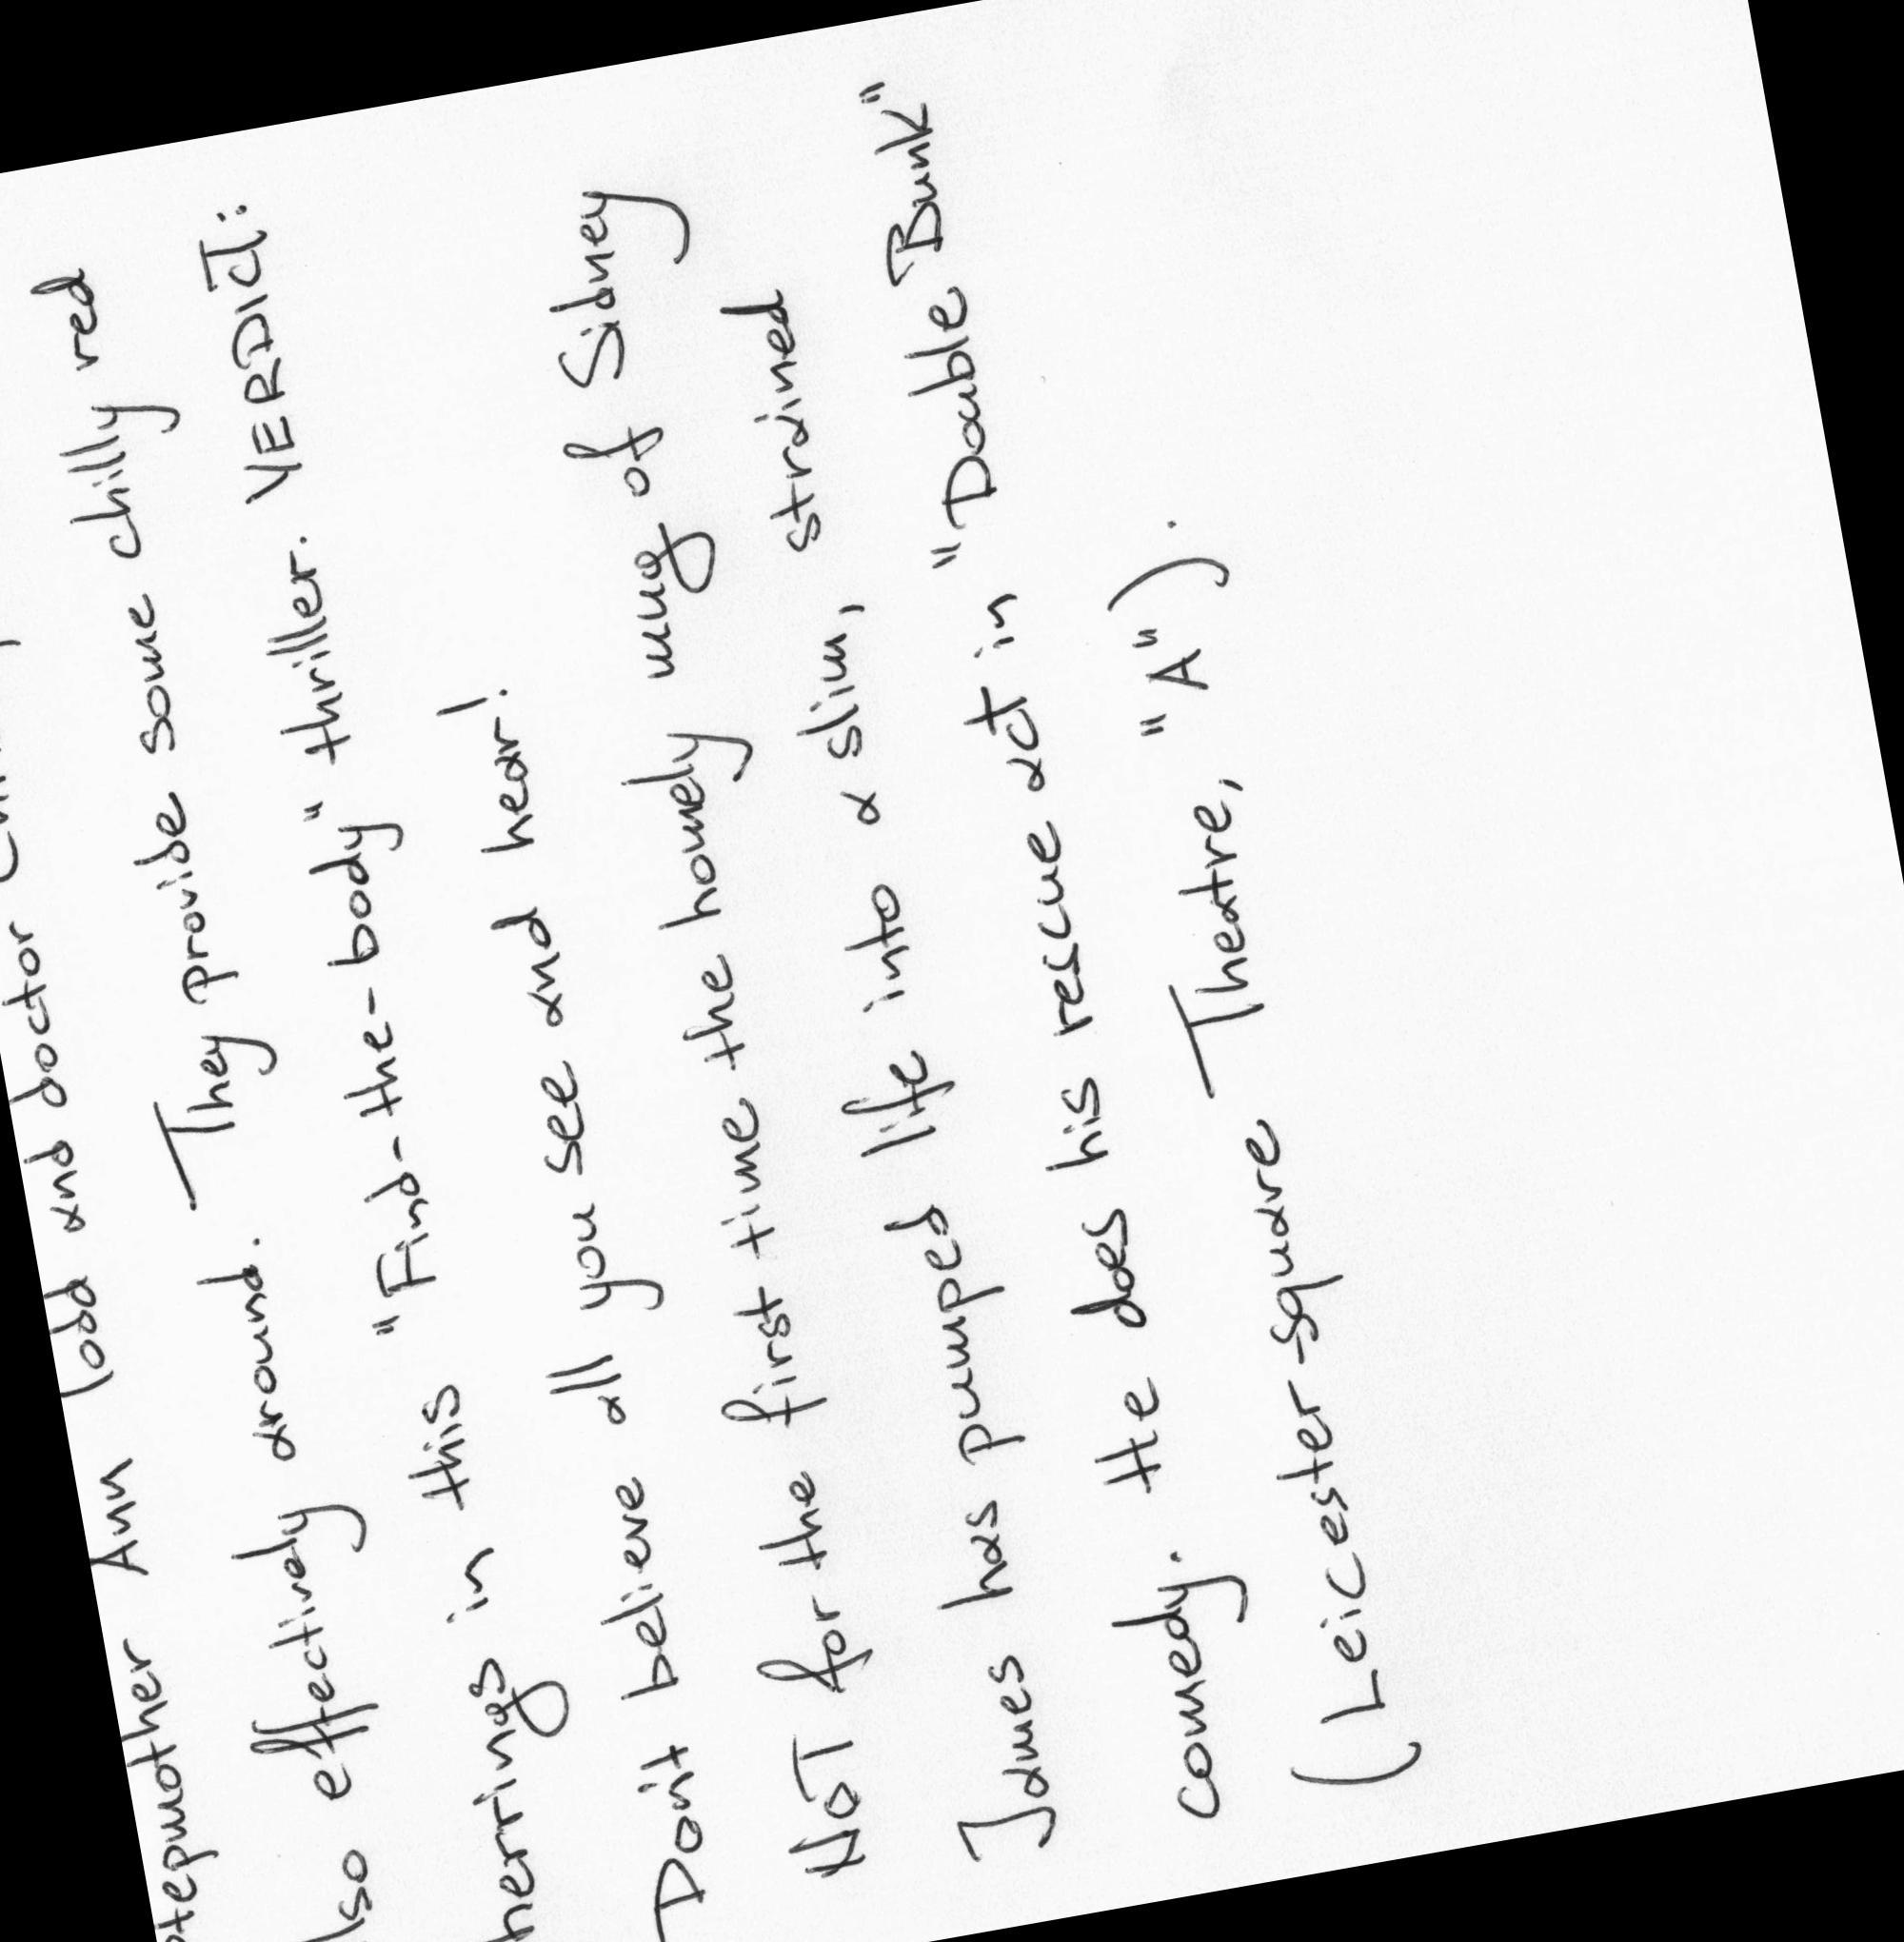 stepmother Ann Todd and doctor
also effectively around. They provide some chilly red
herrings in this "Find-the-body" thriller. VERDICT:
Don't believe all you see and hear!
NOT for the first time the homely mug of Sidney
James has pumped life into a slim, strained
comedy. He does his rescue act in "Double Bunk"
(Leicester-square Theatre, "A").